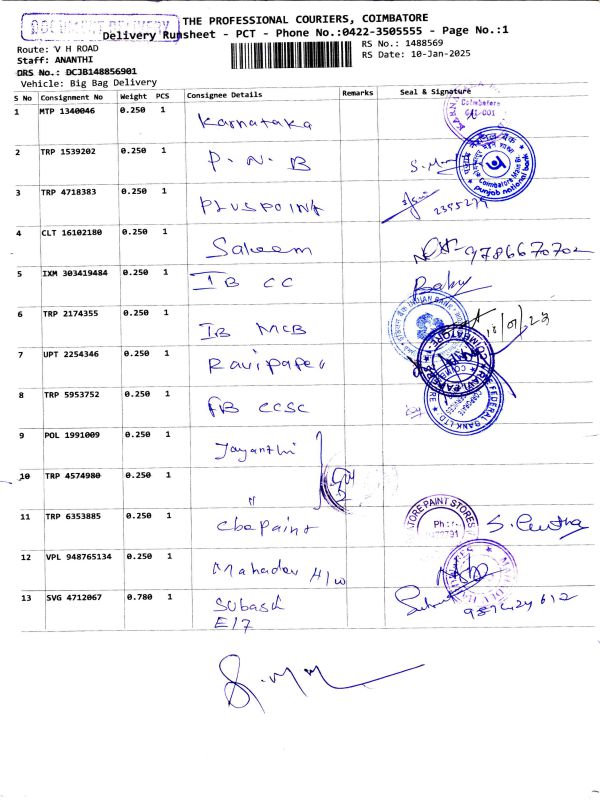 DOCUMENT DELIVERY
THE PROFESSIONAL COURIERS, COIMBATORE
Delivery Runsheet - PCT - Phone No.:0422-3505555 - Page No.:1
Route: V H ROAD
RS No.: 1488569
Staff: ANANTHI
RS Date: 10-Jan-2025
DRS No.: DCJB148856901
Vehicle: Big Bag Delivery
S No Consignment No Weight PCS Consignee Details Remarks Seal & Signature
1 MTP 1340046 0.250 1 Karnataka
Coimbatore
641-001
2 TRP 1539202 0.250 1 P.N.B
punjab national bank
3 TRP 4718383 0.250 1 PLUSPOINT
4 CLT 16102180 0.250 1 Saleem 9786670702
5 IXM 303419484 0.250 1 IB CC Baby
6 TRP 2174355 0.250 1 IB MCB
INDIAN BANK
7 UPT 2254346 0.250 1 Ravipaper
RAVI PAPERS
COIMBATORE-1
8 TRP 5953752 0.250 1 FB CCSC
FEDERAL BANK LTD.
9 POL 1991009 0.250 1 Jayanthi
10 TRP 4574980 0.250 1 "
11 TRP 6353885 0.250 1 Cbepaint
PAINT STORES
Ph :
12 VPL 948765134 0.250 1 Mahadev H/w
13 SVG 4712067 0.780 1 Subash
E17